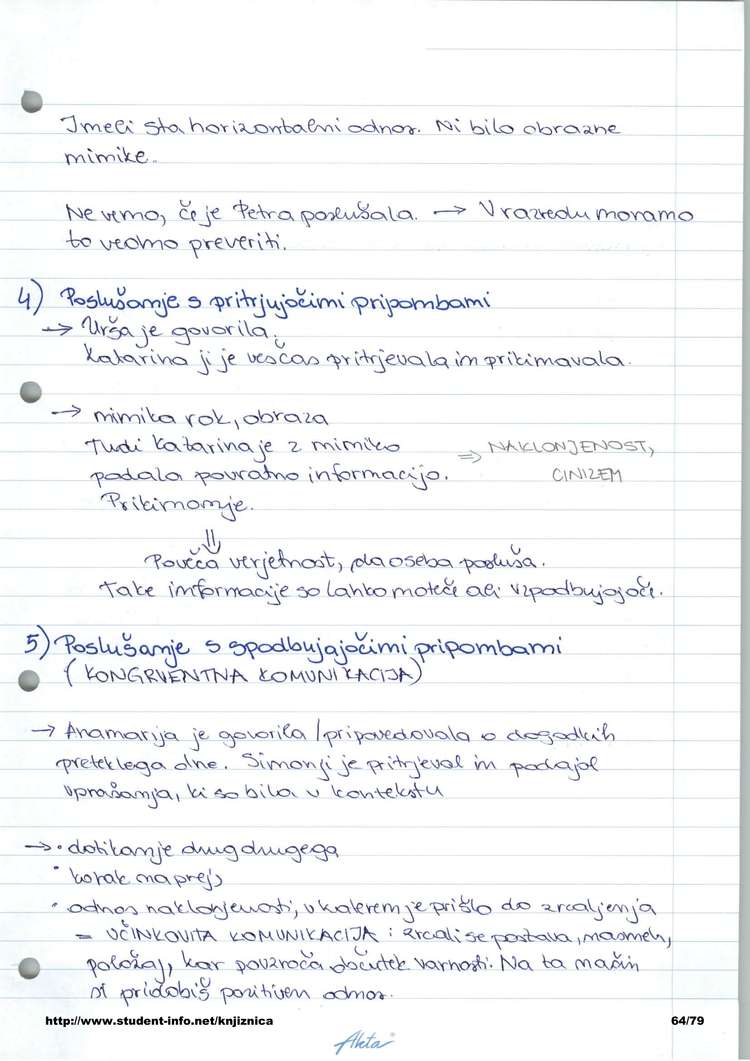 Imeli sta horizontalni odnos. Ni bilo obrazne
mimike.
Ne vemo, če je Petra poslušala. → V razredu moramo
to vedno preveriti.
4) Poslušanje s pritrjujočimi pripombami
→ Urša je govorila,
Katarina ji je vesčas pritrjevala in prikimavala.
→ mimika rok, obraza
Tudi Katarina je z mimiko ⇒ NAKLONJENOST,
podala povratno informacijo. CINIZEM
Prikimanje.
⇓
Poveča verjetnost, da oseba posluša.
Take informacije so lahko moteče ali vzpodbujajoče.
5) Poslušanje s spodbujajočimi pripombami
(KONGRUENTNA KOMUNIKACIJA)
→ Anamarija je govorila / pripovedovala o dogodkih
preteklega dne. Simon ji je pritrjeval in podajal
vprašanja, ki so bila v kontekstu
→ • dotikanje drug drugega
• korak naprej
• odnos naklonjenosti, v katerem je prišlo do zrcaljenja
= UČINKOVITA KOMUNIKACIJA : zrcali se postava, nasmeh,
položaj, kar povzroča občutek varnosti. Na ta način
si pridobiš pozitiven odnos.
http://www.student-info.net/knjiznica 64/79
Akta